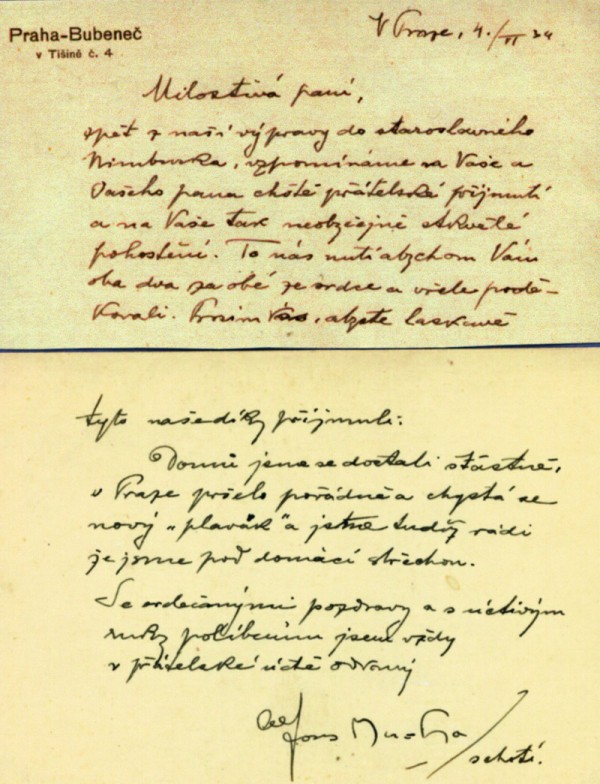 Praha-Bubeneč
v Tišině č. 4
V Praze, 4./VI 34
Milostivá paní,
zpět z naší výpravy do staroslavného
Nimburka, vzpomínáme na Vaše a
Vašeho pana chotě přátelské přijmutí
a na Vaše tak neobyčejně skvělé
pohostění. To nás nutí abychom Vám
oba dva za obé ze srdce a vřele podě-
kovali. Prosím Vás, abyste laskavě
tyto naše díky přijmuli.
Domů jsme se dostali šťastně,
v Praze pršelo pořádně a chystá se
nový „plavák“ a jsme tudíž rádi
že jsme pod domácí střechou.
Se srdečnými pozdravy a s uctivým
ruky políbením jsem vždy
v přátelské úctě oddaný
Alfons Mucha
s chotí.